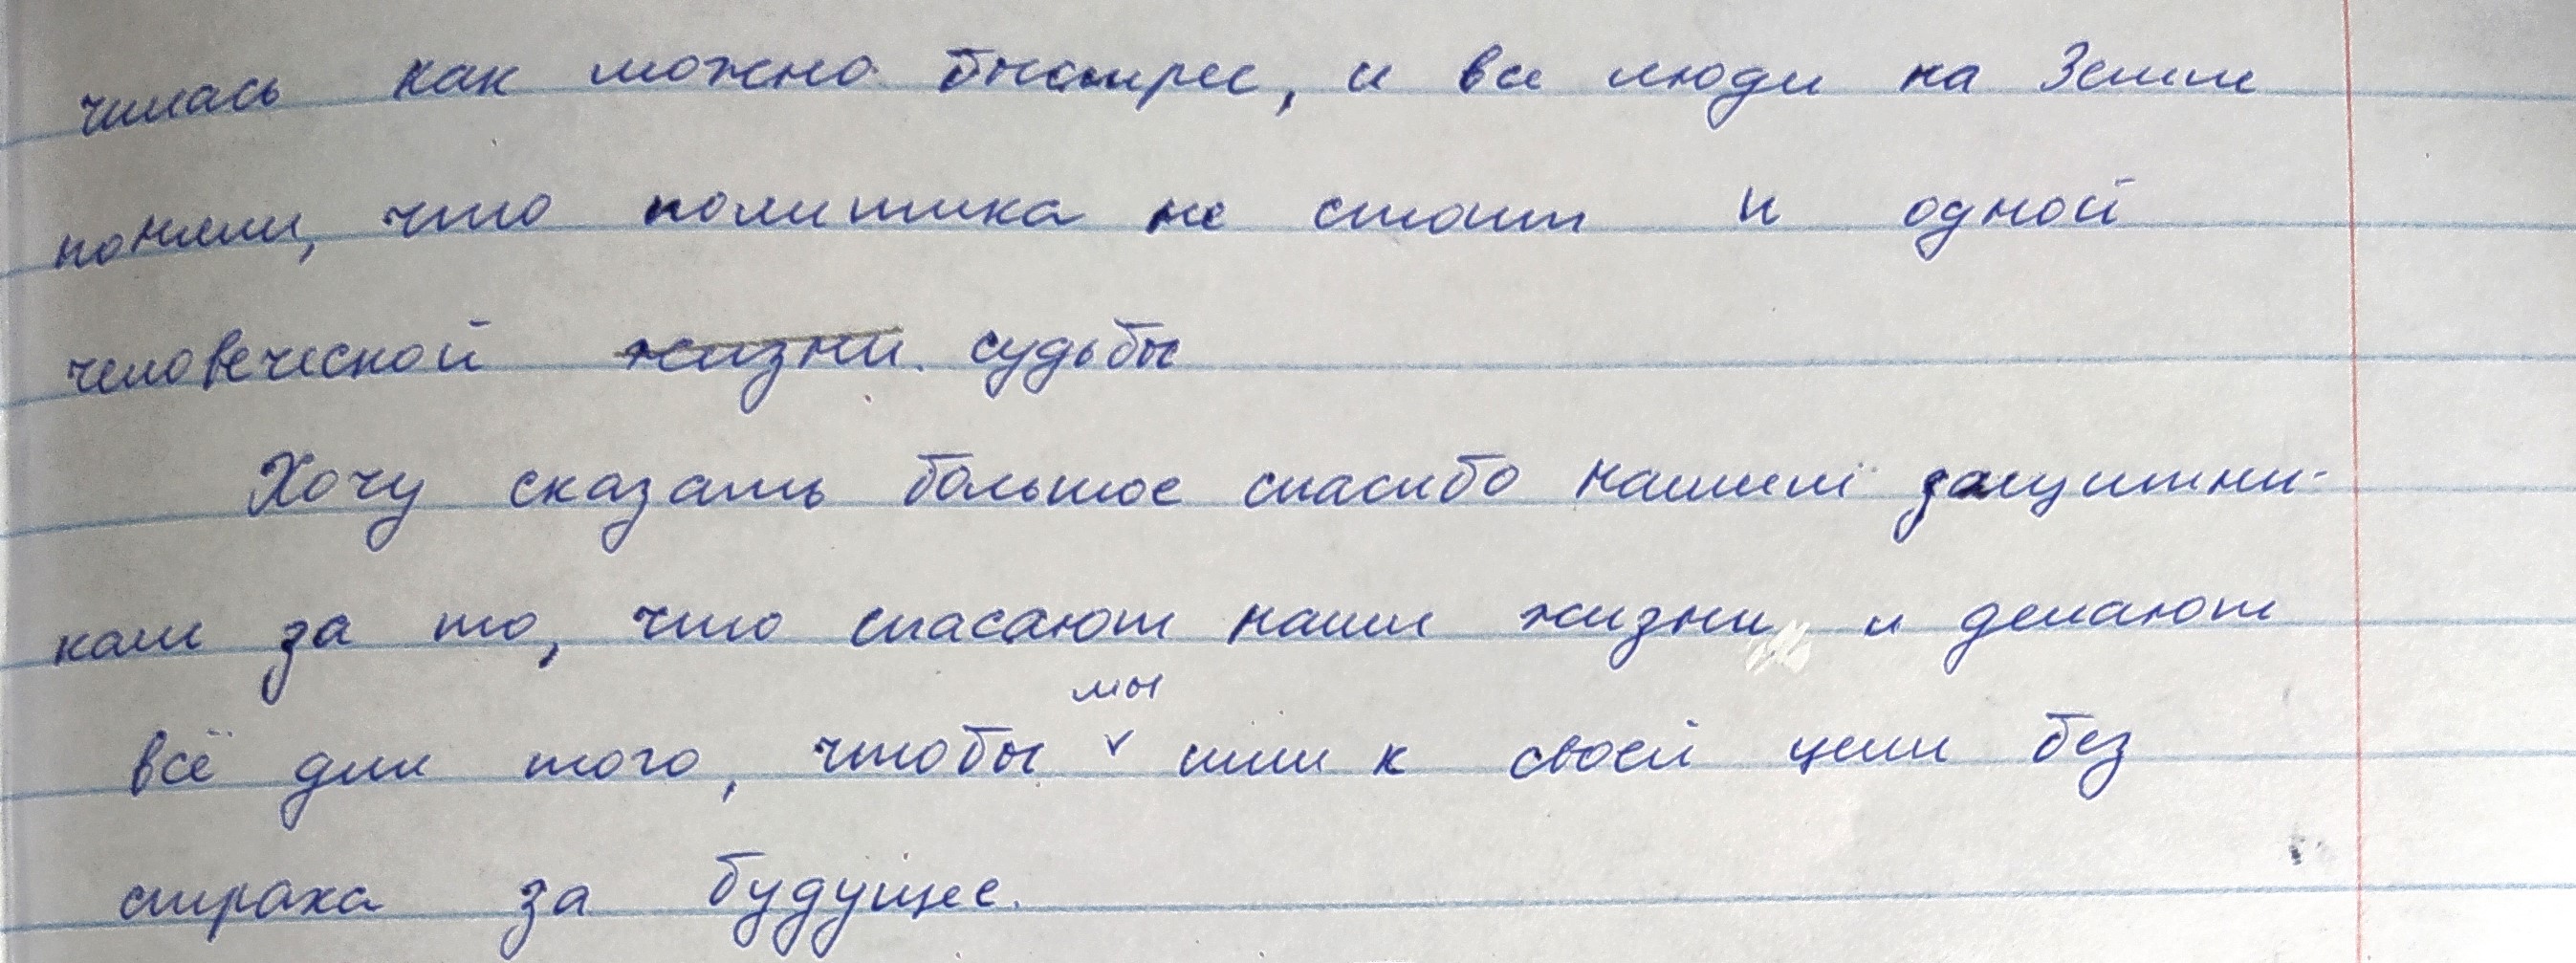 чилась как можно быстрее, и все люди на Земле
поняли, что политика не стоит и одной
человеческой жизни. судьбы
Хочу сказать большое спасибо нашим защитни-
кам за то, что спасают наши жизни и делают
всё для того, чтобы мы шли к своей цели без
страха за будущее.